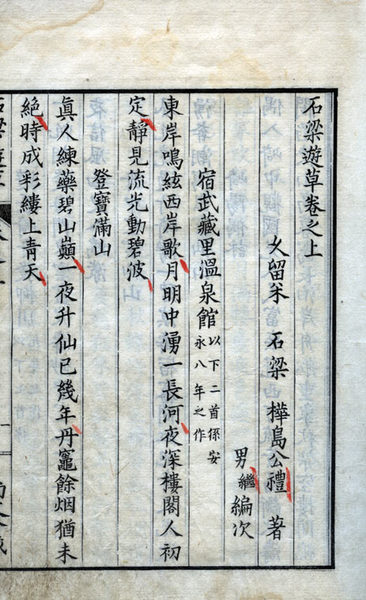 石梁遊草卷之上
久留米 石梁 樺島公禮 著
男 繼 編次
宿武藏里溫泉館 以下二首係安永八年之作
東岸鳴絃西岸歌月明中湧一長河夜深樓閣人初
定靜見流光動碧波
登寶滿山
眞人練藥碧山巓一夜升仙已幾年丹竈餘烟猶未
絶時成彩縷上青天